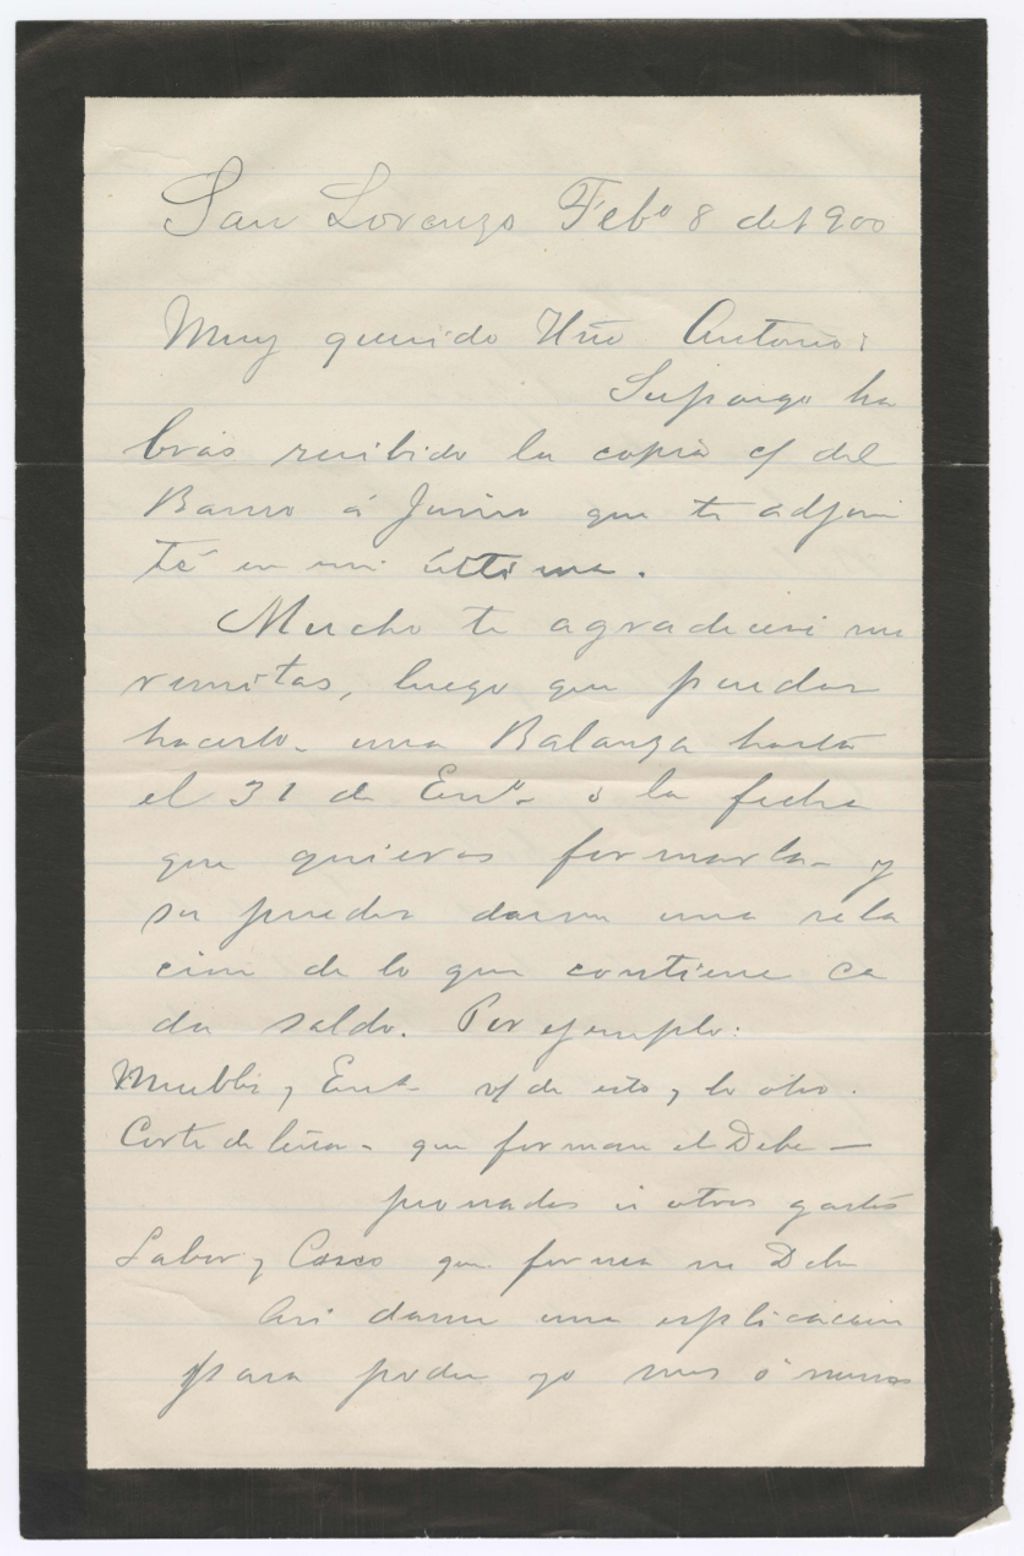 San Lorenzo Feb° 8 de 1900
Muy querido Hño Antonio:
Supongo ha
brás recibido la copia c/ del
Banco á Junio que te adjun
té en mi última.
Mucho te agradeceré me
remitas, luego que puedas
hacerlo - una Balanza hasta
el 31 de En° - ó la fecha
que quieras formarla - y
si puedes darme una rela
cion de lo que contiene ca
da saldo. Por ejemplo:
Muebles y v/ de esto y lo otro.
Corte de leña - que forman el Debe -
ú otros gastos
Labor y Casco que forma su Debe
Asi darme una esplicacion
para poder yo mas ó menos